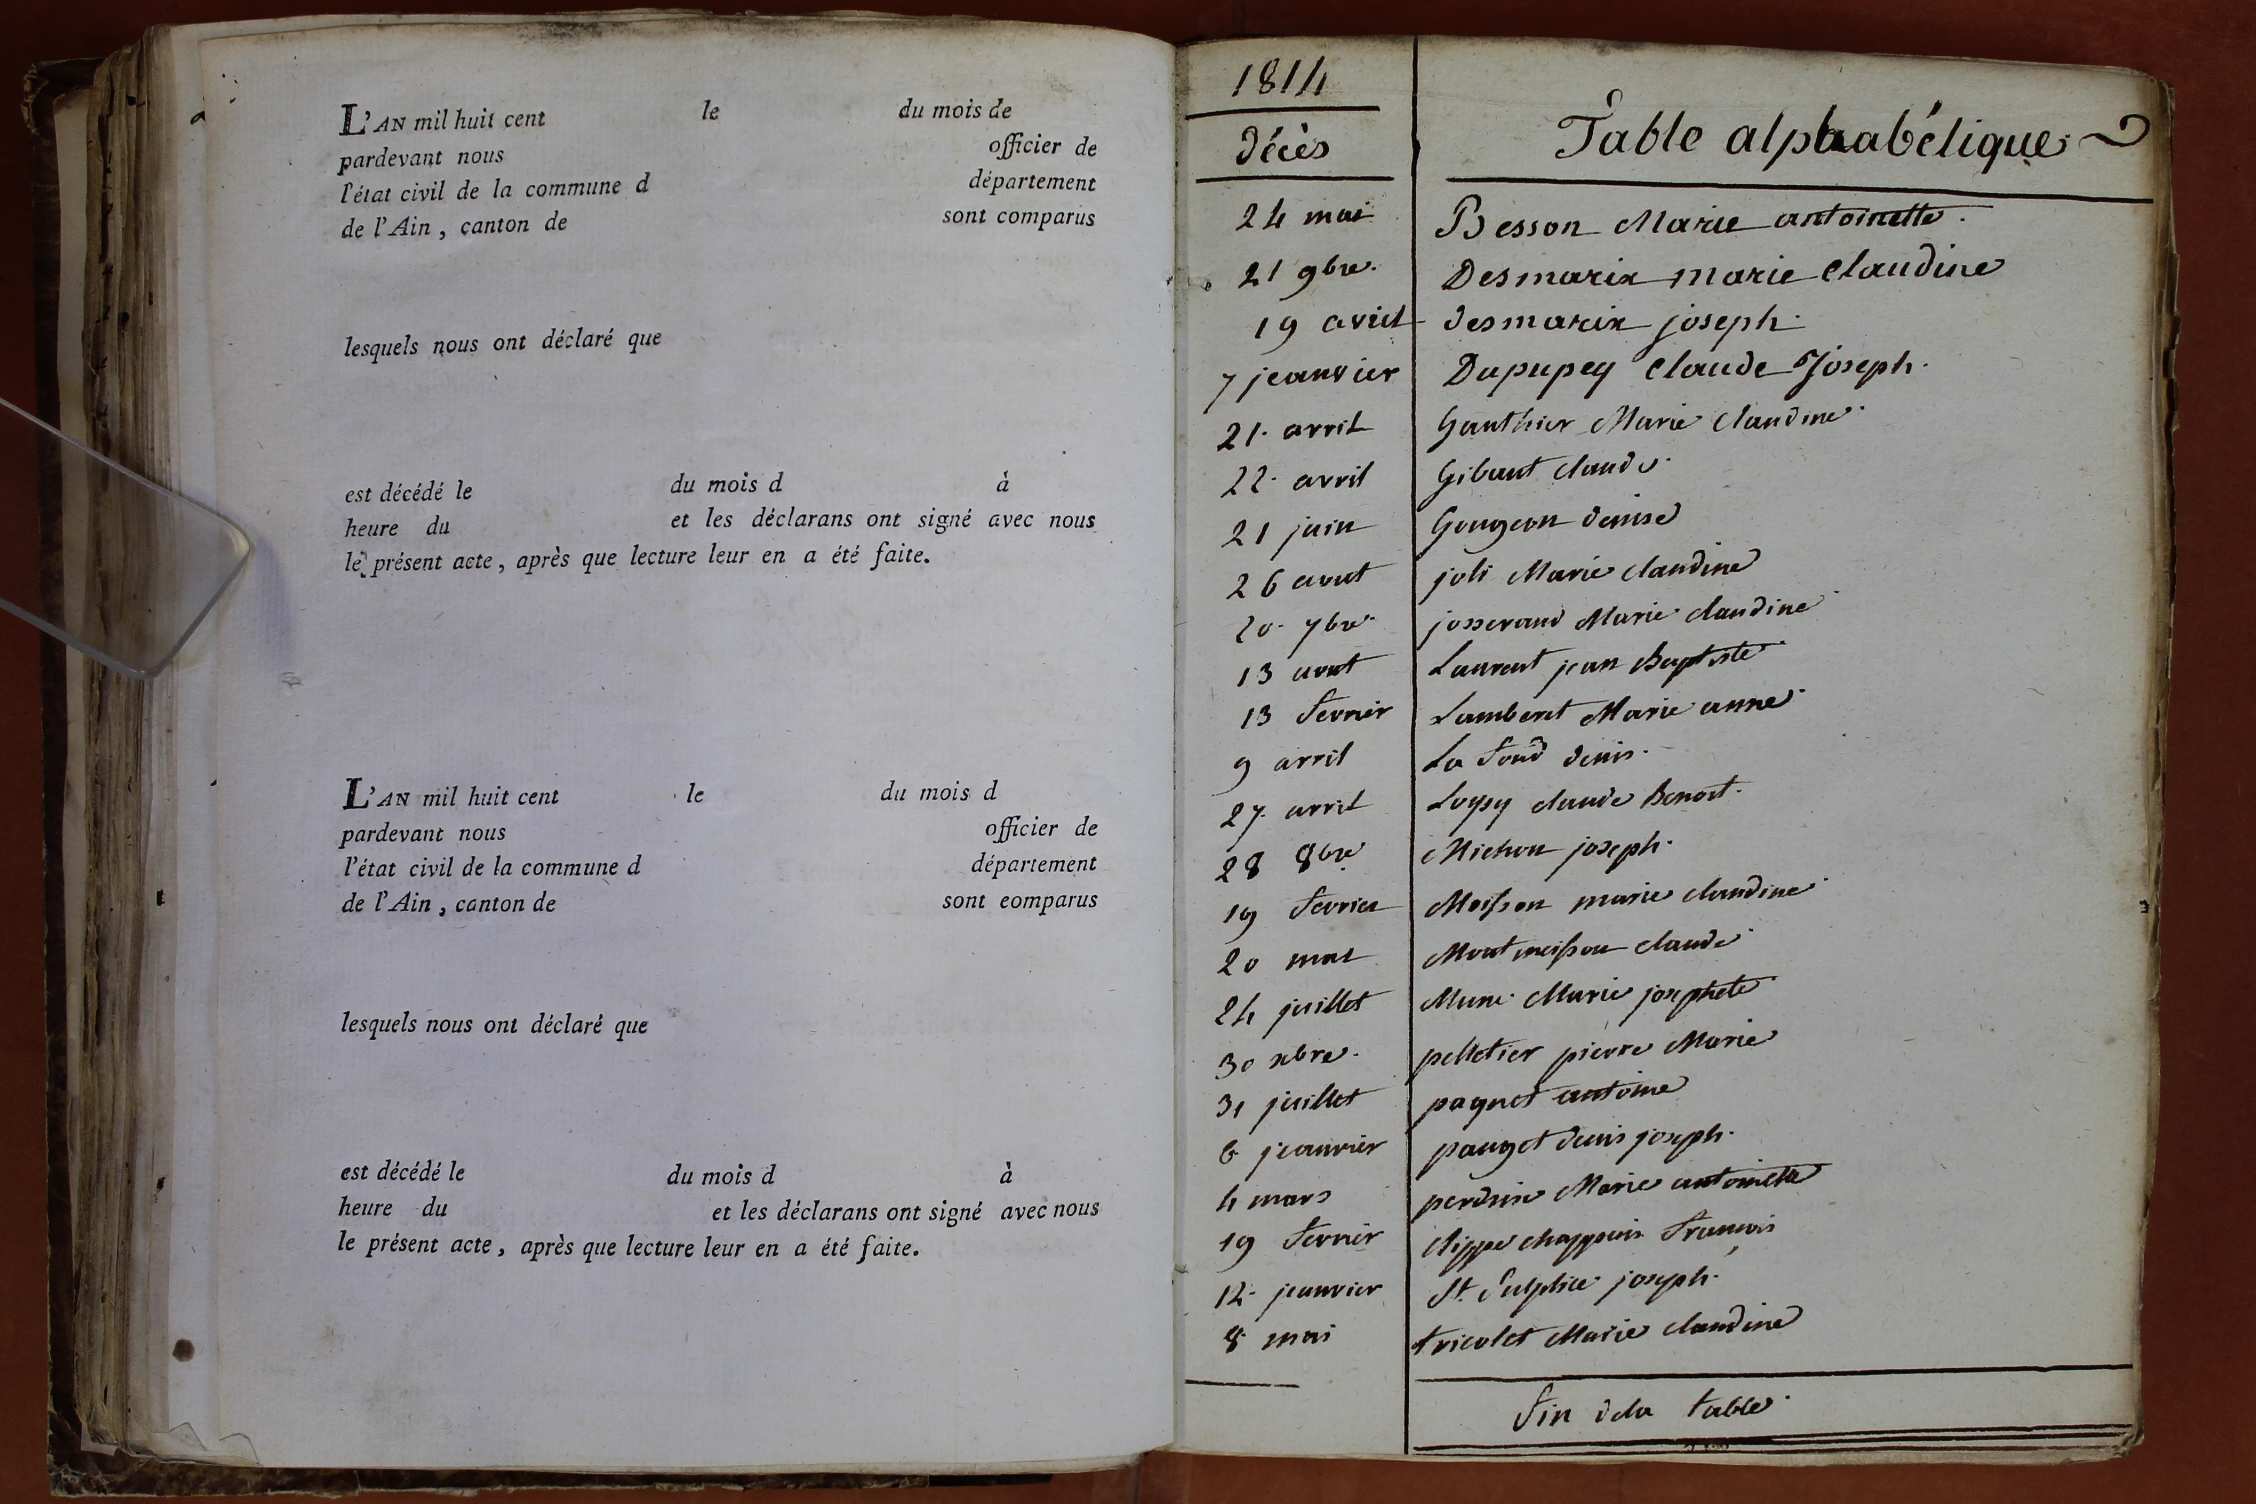 L'AN mil huit cent le du mois de
pardevant nous officier de
l'état civil de la commune d département
de l'Ain, canton de sont comparus
lesquels nous ont déclaré que
est décédé le du mois d à
heure du et les déclarans ont signé avec nous
le présent acte, après que lecture leur en a été faite.
L'AN mil huit cent le du mois d
pardevant nous officier de
l'état civil de la commune d département
de l'Ain, canton de sont comparus
lesquels nous ont déclaré que
est décédé le du mois d à
heure du et les déclarans ont signé avec nous
le présent acte, après que lecture leur en a été faite.
1814
décès Table alphabétique
24 mai Besson Marie antoinette
21 9bre. Desmarix marie Claudine
19 avril desmarix joseph
7 jeanvier Dupupey Claude Joseph
21 avril Gauthier Marie Claudine
22 avril Gibaut claude
21 juin Gougeon denise
26 aout joli Marie claudine
20 7bre josserand Marie claudine
13 aout Laurent jean Baptiste
13 fevrier Lamberet Marie anne
9 avril La fond denis
27 avril claude Benoit
28 8bre Michon joseph
19 fevrier Moisson marie claudine
20 mai Montmoisson claude
24 juillet Marie josephete
30 xbre. pelletier pierre Marie
31 juillet paquet antoine
6 jeanvier pauget denis joseph
4 mars perdrix Marie antoinette
19 fevrier chappuis françois
12 jeanvier St. Sulpice joseph
8 mai tricolet Marie claudine
fin dela table